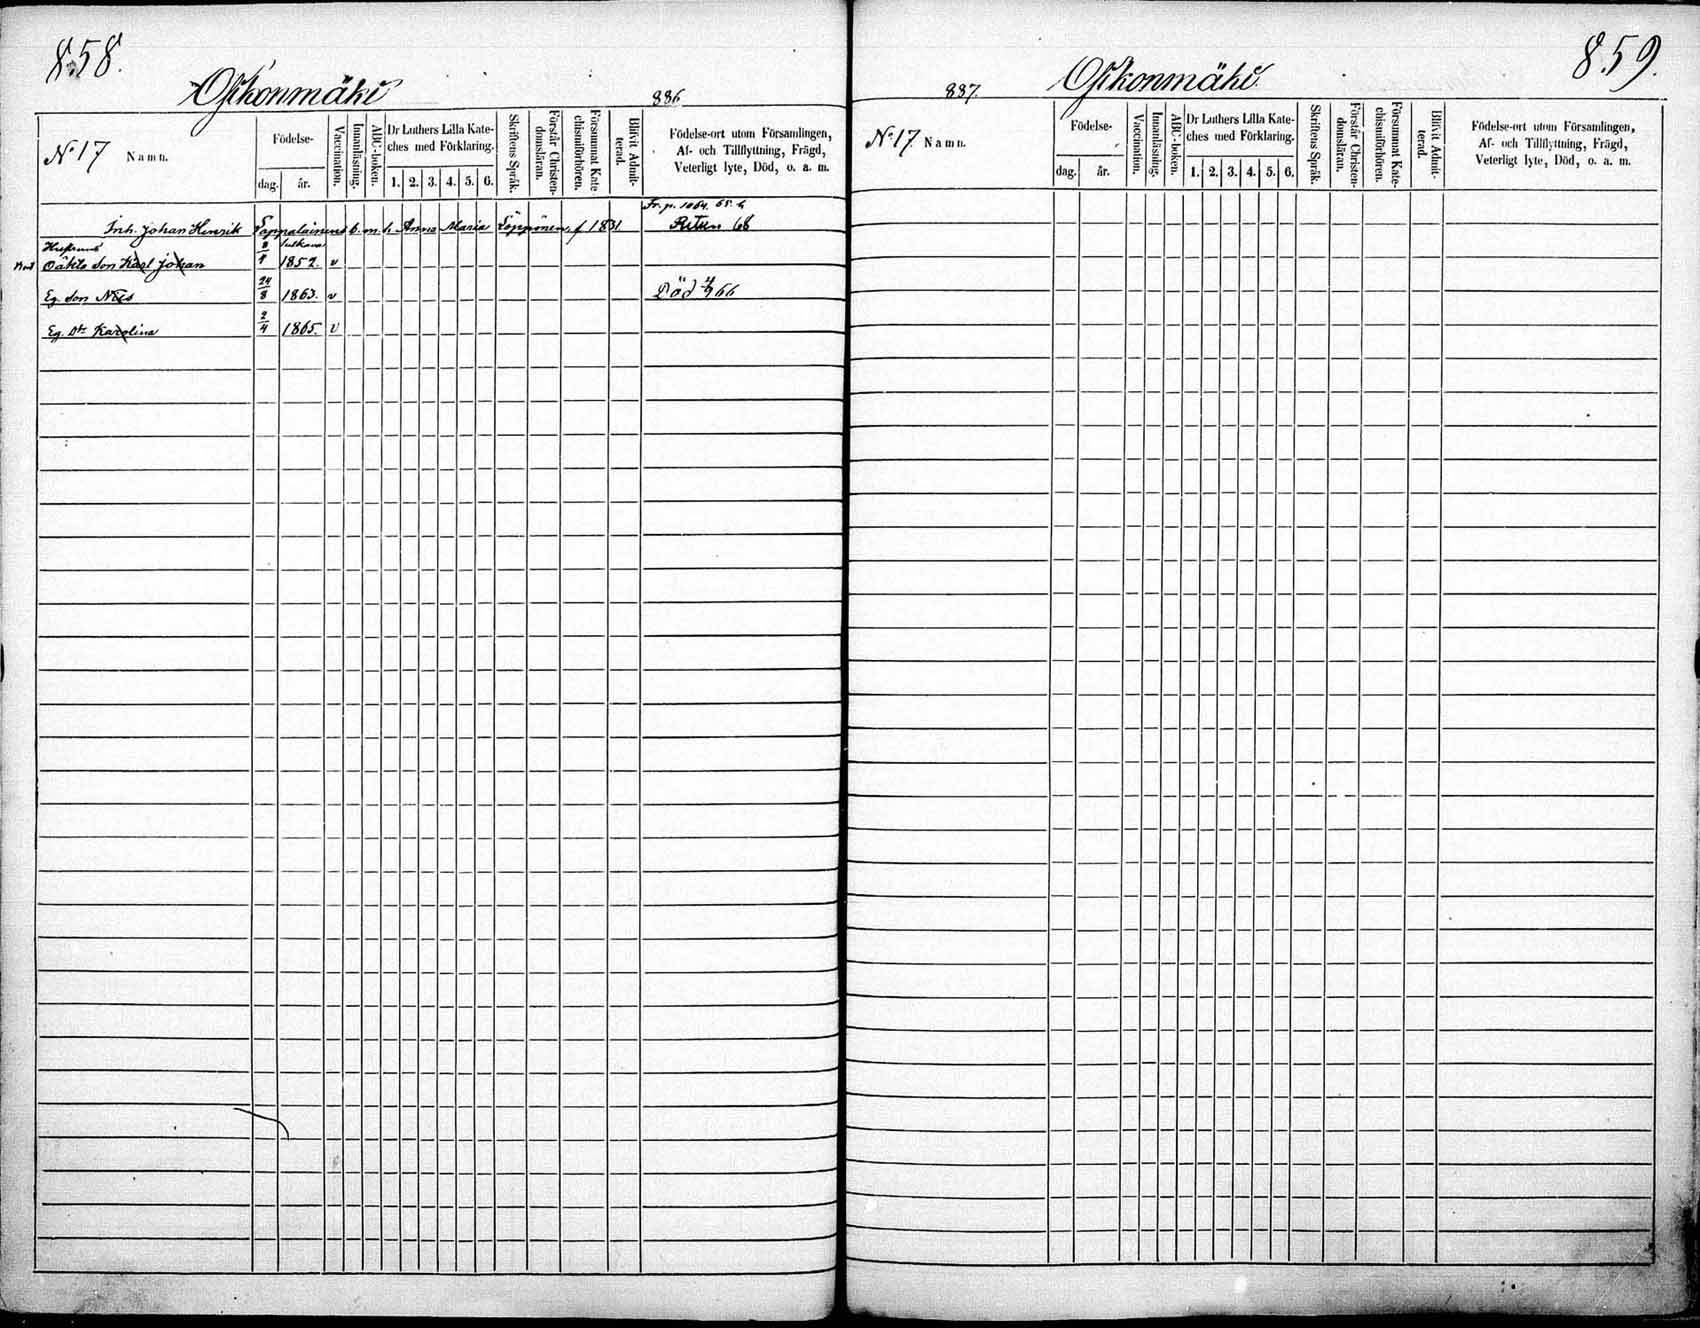 858.
Oikonmäki
886
N:o 17 Namn.
Födelse-
dag.
år.
Vaccination.
Innanläsning.
ABC-boken.
Dr Luthers Lilla Kate-
ches med Förklaring.
1. 2. 3. 4. 5. 6.
Skriftens Språk.
Förstår Christen-
domsläran.
Försummat Kate-
chismiförhören.
Blifvit Admit-
terad.
Födelse-ort utom Församlingen,
Af- och Tillflyttning, Frägd,
Veterligt lyte, Död, o. a. m.
Fr. p. 1064. 65.
Inh. Johan Henrik Pappalainens b. m. h Anna Maria Löppönen f 1831
68
Hustruns
Oäkta son Karl Johan 1852. v
Eg. son Nils 24/8 1863. v Död 4/9 66
Eg. Dr Karolina 2/4 1865. v
859.
Oikonmäki
887.
N:o 17 Namn.
Födelse-
dag.
år.
Vaccination.
Innanläsning.
ABC-boken.
Dr Luthers Lilla Kate-
ches med Förklaring.
1. 2. 3. 4. 5. 6.
Skriftens Språk.
Förstår Christen-
domsläran.
Försummat Kate-
chismiförhören.
Blifvit Admit-
terad.
Födelse-ort utom Församlingen,
Af- och Tillflyttning, Frägd,
Veterligt lyte, Död, o. a. m.